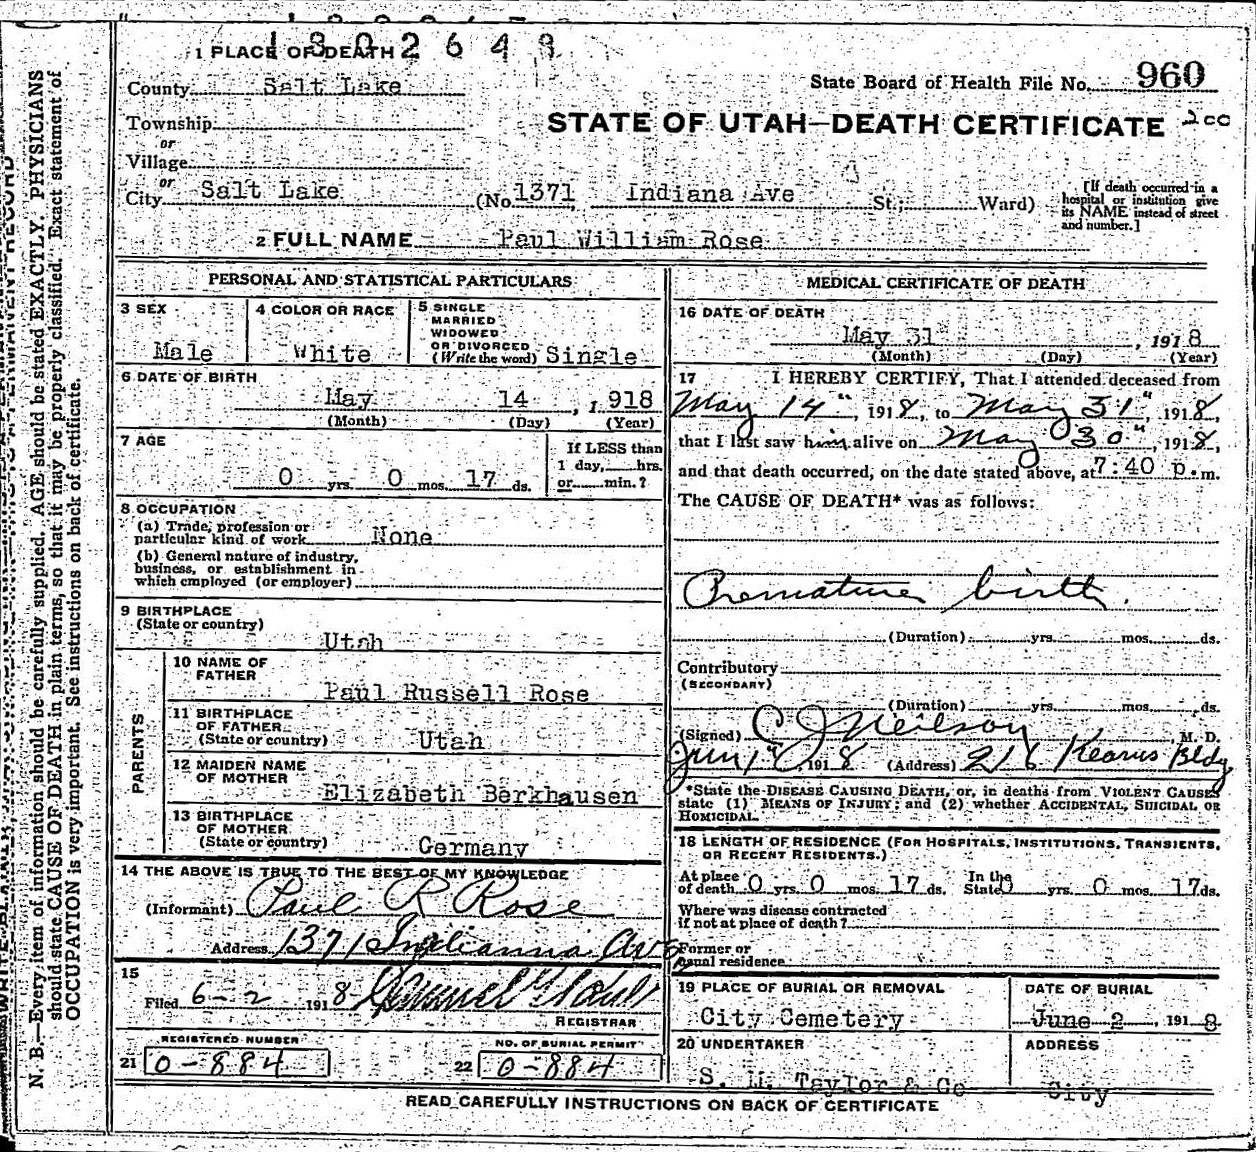 1302643
1 PLACE OF DEATH
County Salt Lake
State Board of Health File No. 960
Township
or
STATE OF UTAH—DEATH CERTIFICATE
Village
or
City Salt Lake (No. 1371 Indiana Ave St.; Ward)
[If death occurred in a
hospital or institution give
its NAME instead of street
and number.]
2 FULL NAME Paul William Rose
PERSONAL AND STATISTICAL PARTICULARS
3 SEX
Male
4 COLOR OR RACE
White
5 SINGLE
MARRIED
WIDOWED
OR DIVORCED
(Write the word) Single
6 DATE OF BIRTH
May 14, 1918
(Month) (Day) (Year)
7 AGE
0 yrs. 0 mos. 17 ds.
If LESS than
1 day, hrs.
or min.?
8 OCCUPATION
(a) Trade, profession or
particular kind of work None
(b) General nature of industry,
business, or establishment in
which employed (or employer)
9 BIRTHPLACE
(State or country)
Utah
PARENTS
10 NAME OF
FATHER
Paul Russell Rose
11 BIRTHPLACE
OF FATHER
(State or country) Utah
12 MAIDEN NAME
OF MOTHER
Elizabeth Berkhausen
13 BIRTHPLACE
OF MOTHER
(State or country) Germany
14 THE ABOVE IS TRUE TO THE BEST OF MY KNOWLEDGE
(Informant) Paul R Rose
Address 1371 Indianna Ave
15
Filed 6-2 1918
REGISTRAR
REGISTERED NUMBER
21 0-884
NO. OF BURIAL PERMIT
22 0-884
MEDICAL CERTIFICATE OF DEATH
16 DATE OF DEATH
May 31, 1918
(Month) (Day) (Year)
17 I HEREBY CERTIFY, That I attended deceased from
May 14", 1918, to May 31", 1918,
that I last saw him alive on May 30", 1918,
and that death occurred, on the date stated above, at 7:40 p.m.
The CAUSE OF DEATH* was as follows:
Premature birth.
(Duration) yrs. mos. ds.
Contributory
(SECONDARY)
(Duration) yrs. mos. ds.
(Signed) C J Neilson, M. D.
Jun 1" 1918 (Address) 216 Kearns Bldg
*State the DISEASE CAUSING DEATH, or, in deaths from VIOLENT CAUSES
state (1) MEANS OF INJURY; and (2) whether ACCIDENTAL, SUICIDAL OR
HOMICIDAL.
18 LENGTH OF RESIDENCE (FOR HOSPITALS, INSTITUTIONS, TRANSIENTS,
OR RECENT RESIDENTS.)
At place
of death 0 yrs. 0 mos. 17 ds. In the
State 0 yrs. 0 mos. 17 ds.
Where was disease contracted
if not at place of death?
Former or
usual residence
19 PLACE OF BURIAL OR REMOVAL
City Cemetery
DATE OF BURIAL
June 2, 1918
20 UNDERTAKER
S. M. Taylor & Co
ADDRESS
City
READ CAREFULLY INSTRUCTIONS ON BACK OF CERTIFICATE
N. B.—Every item of information should be carefully supplied. AGE should be stated EXACTLY. PHYSICIANS
should state CAUSE OF DEATH in plain terms, so that it may be properly classified. Exact statement of
OCCUPATION is very important. See instructions on back of certificate.